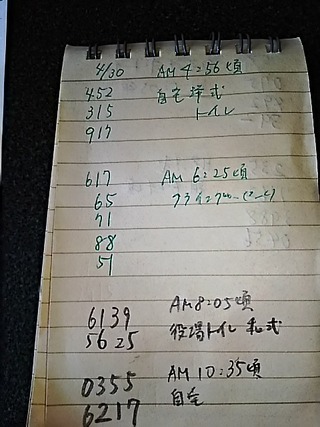 4/30 AM 4:56頃
452 自宅洋式
315 トイレ
917
617 AM 6:25頃
65
71
88
51
6139 AM8:05頃
5625 役場トイレ 和式
0355 AM 10:35頃
6217 自宅